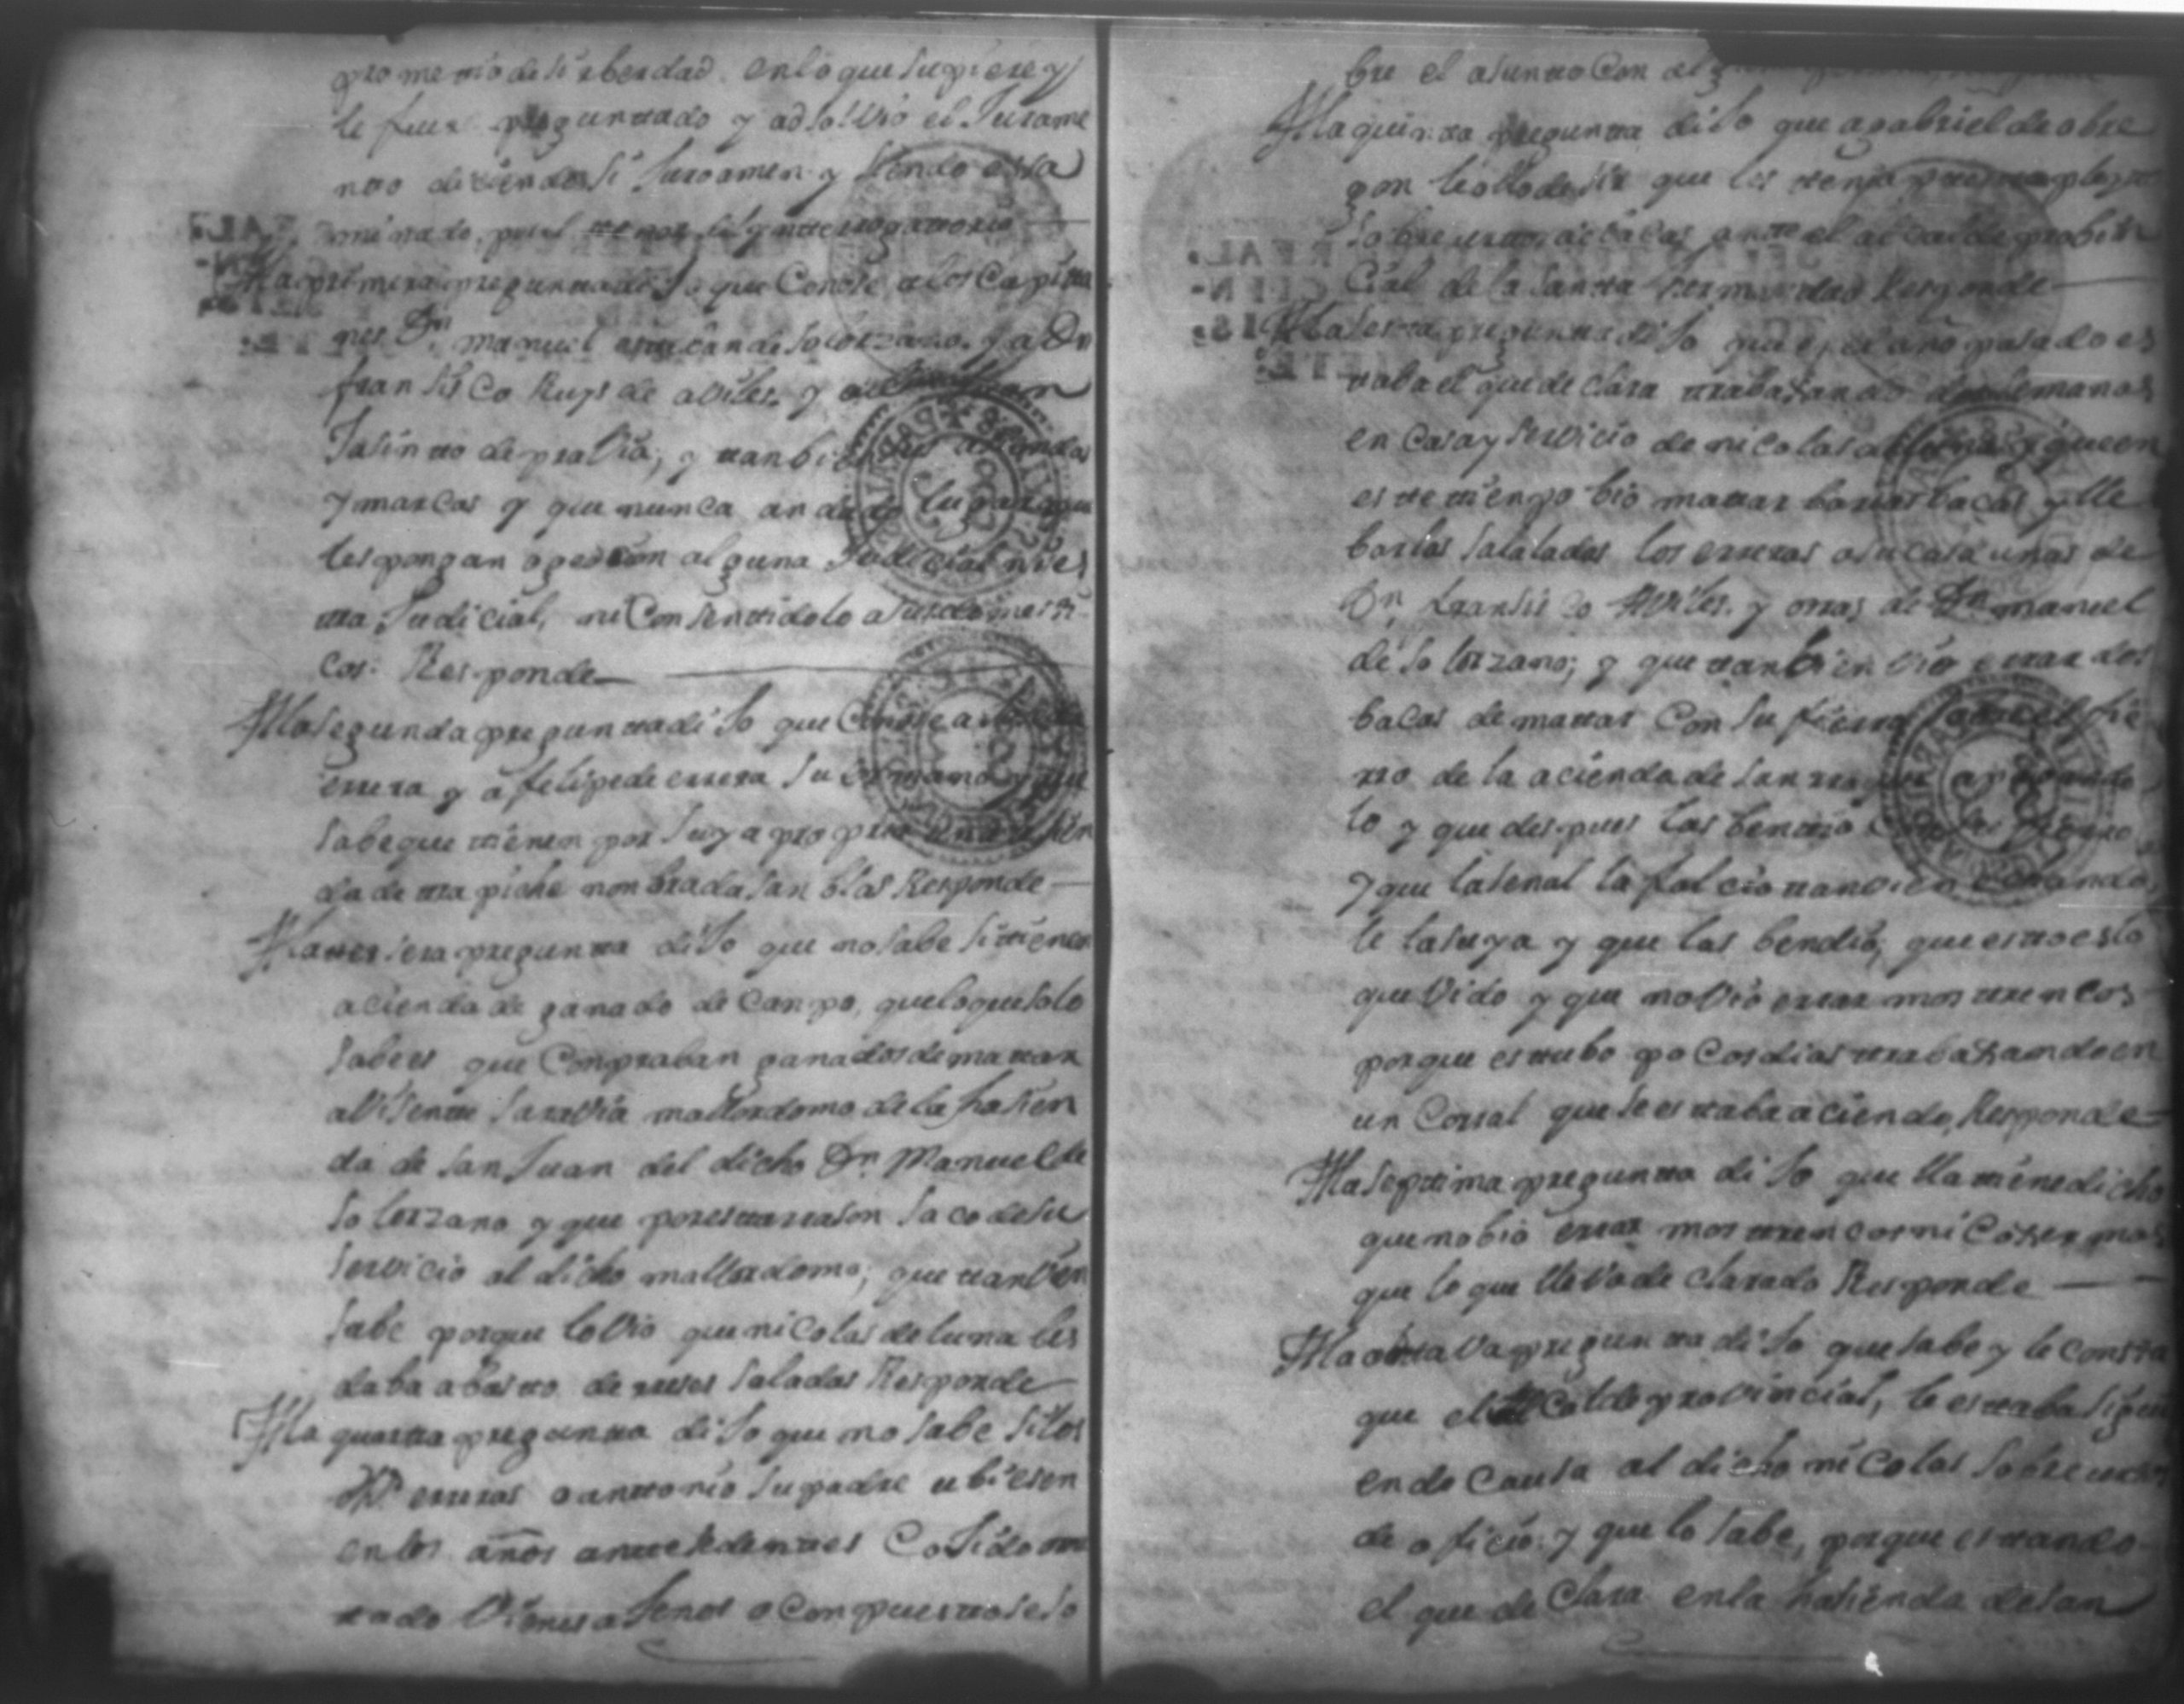 prometio desir berdad en lo que supiere y
le fuere preguntado y adsolvio el Jurame
nto disiendo si Juro amen y siendo essa
minado, por el tenor del ynterrogattorio
A la primera pregunta diso que Conose a los Capita
nes Dn manuel esteban de solorzano, y a Dn
fransisco Ruys de aviles, y a
Jasintto de pravia, y tanbien sus asiendas
y marcas y que nunca an dado lugar a que
les pongan opesision alguna Judicial ni es
tra Judicial, ni Consentidolo a sus domesti
cos Responde
A la segunda pregunta diso que Conose a
errera y a felipe de errera su ermano y que
sabe que tienen por suya propia una asien
da de trapiche nonbrada san blas Responde
A la tersera pregunta diso que no sabe si tienen
acienda de ganado de canpo, que lo que solo
sabe es que Conpraban ganados de mattar
a Visente saravia mallordomo de la hasien
da de san Juan del dicho Dn Manuel de
solorzano y que por esta rason saco de su
servicio al dicho mallordomo; que tanbien
sabe porque lo vio que nicolas de luna les
daba abasto de reses saladas Responde
A la quarta pregunta diso que no sabe si los
erreras o anttonio su padre ubiesen
en los años antesedentes Cosido me
tado Vienes a senos o Conpuestose so
bre el asuntto Con el
A la quinta pregunta diso que a gabriel de obre
gon le ollo desir que les tenia puesto pleyto
sobre unas bacas ante el alcalde probin
cial de la santa hermandad Responde
A la sesta pregunta diso que el año pasado es
taba el que declara trabasando dos semanas
en casa y servicio de nicolas y que en
este tienpo bio mattar barias bacas y lle
barlas saladas los erreras a su casa unas de
Dn fransisco Aviles y otras de Dn manuel
de solorzano; y que tanbien vio errar dos
bacas de mattar Con su fierro sobre el fie
rro de la acienda de san
lo y que despues las bendio
y que la señal la falcio tanvien
le la suya y que las bendio, que esto es lo
que vido y que no vio errar mostrencos
porque estubo pocos dias trabasando en
un Corral que se estaba aciendo, Responde
A la septima pregunta diso que lla tiene dicho
que no bio errar mostrencos ni Coser mas
que lo que lleva declarado Responde
A la octtava pregunta diso que sabe y le consta
que el Alcalde provincial, le estaba sigui
endo Causa al dicho nicolas sobre
de oficio y que lo sabe, porque estando
el que declara en la hasienda de san